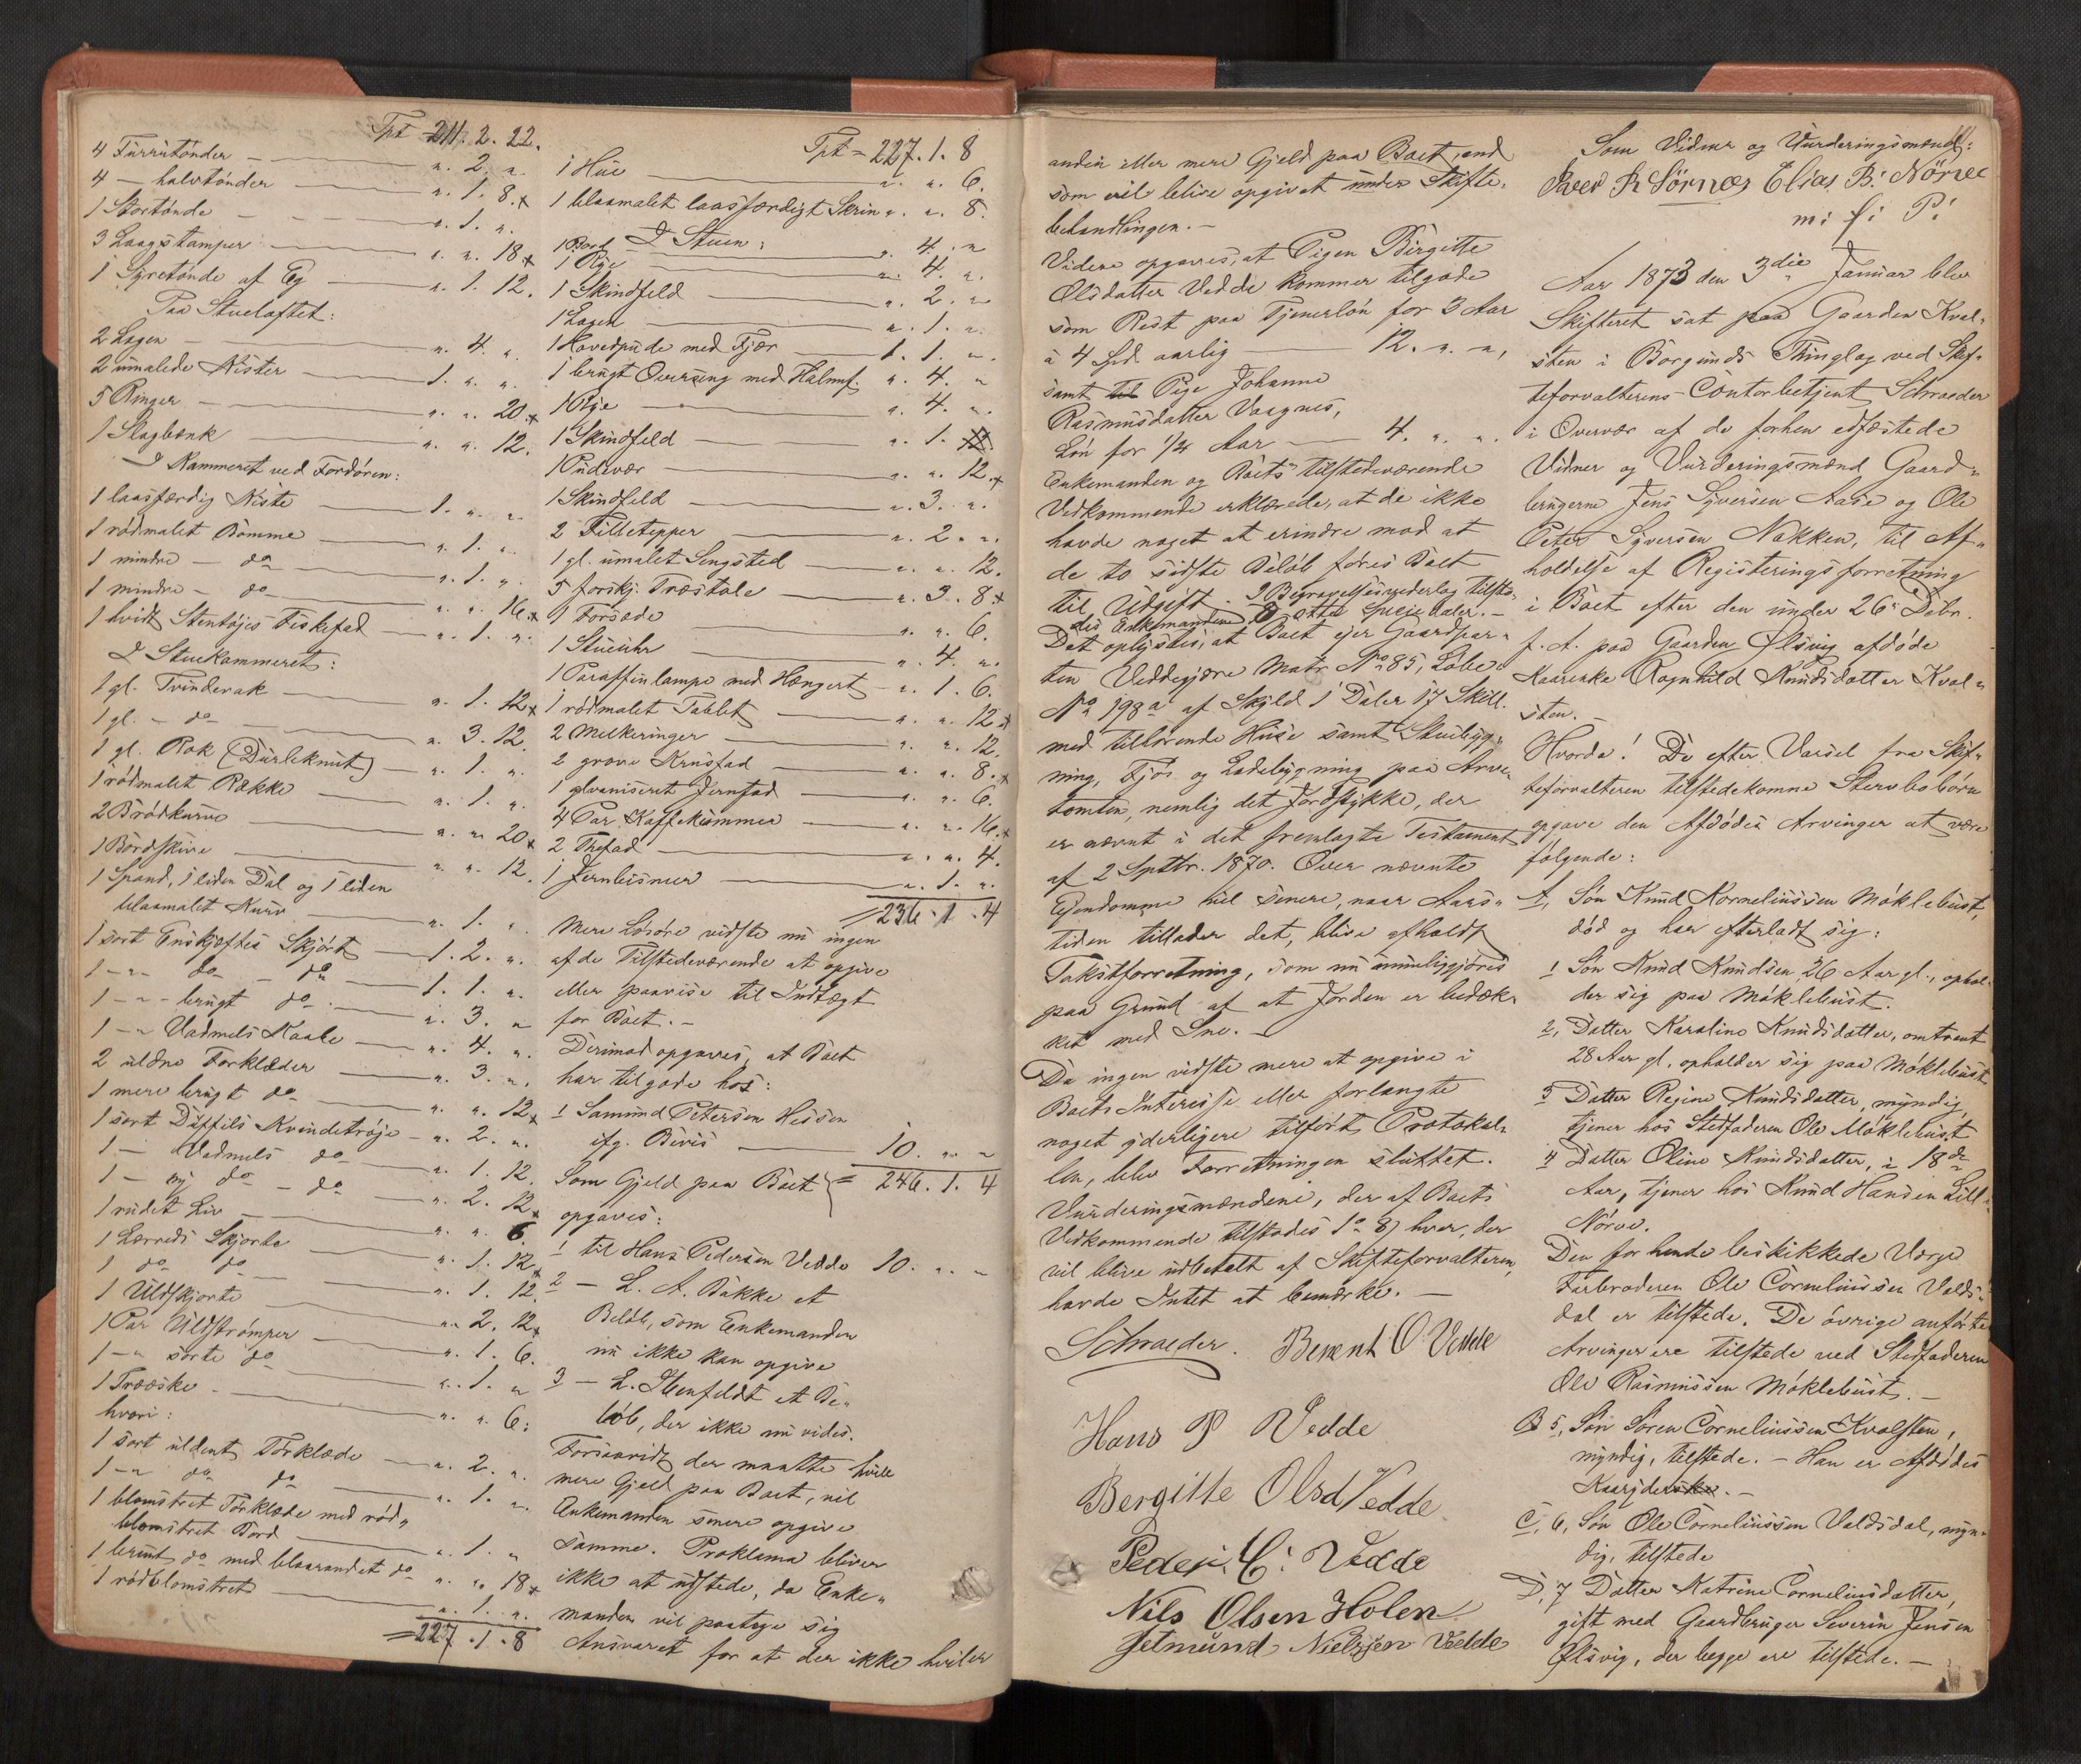 Tpt 211. 2. 22.
4 Furutønder — " 2. "
4 — halvtønder — " 1. 8.
1 Stortønde — " 1. "
3 Laagstamper — " " 18
1 Syretønde af Eg — " 1. 12.
Paa Stueloftet:
2 Lagen — " 4. "
2 umalede Kister — 1. " "
5 Ringer — " " 20
1 Slagbænk — " " 12.
I Kammeret ved Fordøren:
1 laasfærdig Kiste — 1. " "
1 rødmalet Bomme — " 1. "
1 mindre — do — " 1. "
1 mindre — do — " " 16
1 hvidt Stentøjes Fiskefad — " 1. "
I Stuekammeret:
1 gl. Tvinderok — " 1. 12
1 gl. — do — " 3. 12.
1 gl. Rok (Durleknut) — " 1. "
1 rødmalet Række — " 1. "
2 Brødkurve — " " 20
1 Bordskive — " " 12.
1 Spand, 1 liden Dal og 1 liden
blaamalet Kurv — " 1. "
1 sort Enskjæftes Skjørt — 1. 2. "
1 — " — do — do — 1. 1. "
1 — " — brugt do — " 3. "
1 — " Vadmels Kaabe — " 4. "
2 uldne Forklæder — " 3. "
1 mere brugt do — " " 12
1 sort Düffels Kvindetrøje — " 2. "
1 — Vadmels do — " 1. 12.
1 — ny do — do — " 2. 12
1 rudet Liv — " " 6.
1 Lærreds Skjorte — " 1. 12
1 do do — " 1. 12.
1 Uldskjorte — " 2. 12
1 Par Uldstrømper — " 1. 6.
1 — " sorte do — " 1. "
1 Træeske — " " 6.
hvori:
1 sort uldent Tørklæde — " 2. "
1 — " do do — " 1. "
1 blomstret Tørklæde med rød-
blomstret Bord — " 1. "
1 brunt do med blaarandet do — " " 18
1 rødblomstret — " 1. "
= 227. 1. 8
Tpt = 227. 1. 8
1 Hue — " " 6.
1 blaamalet laasfærdigt Skrin " " 8.
I Stuen:
1 Bord — " 4. "
1 Rye — " 4. "
1 Skindfeld — " 2. "
1 Lagen — " 1. "
1 Hovedpude med Fjær — 1. 1. "
1 brugt Overseng med Halmf. " 4. "
1 Rye — " 4. "
1 Skindfeld — " 1.
1 Pudevær — " " 12
1 Skindfeld — " 3. "
2 Filletepper — " 2. "
1 gl. umalet Sengsted — " " 12.
5 forskj. Træstole — " 3. 8
1 Forsæde — " " 6.
1 Stueuhr — " 4. "
1 Paraffinlampe med Hængert — " 1. 6.
1 rødmalet Tablet — " " 12
2 Melkeringer — " " 12.
2 grove Krusfad — " " 8.
1 glvaniseret Jernfad — " " 6.
4 Par Kaffekummer — " " 16.
2 Thefad — " " 4.
1 Jernbismer — " 1. "
= 236. 1. 4
Mere Løsøre vidste nu ingen
af de Tilstedeværende at opgive
eller paavise til Indtægt
for Boet. —
Derimod opgaves, at Boet
har tilgode hos:
1 Samund Petersen Hessen
ifg. Bevis — 10. " "
Som Gjeld paa Boet } = 246. 1. 4
opgaves:
1 til Hans Pedersen Vedde 10. " "
2 — L. A. Bakke et
Beløb, som Enkemanden
nu ikke kan opgive
3 — L. Stenfeldt et Be-
løb, der ikke nu vides.
Forsaavidt der maatte hvile
mere Gjeld paa Boet, vil
Enkemanden senere opgive
samme. Proklama bliver
ikke at udstede, da Enke-
manden vil paatage sig
Ansvaret for at der ikke hviler
anden eller mere Gjeld paa Boet, end
som vil blive opgivet under Skifte-
behandlingen. —
Videre opgaves, at Pigen Birgitte
Olsdatter Vedde kommer tilgode
som Rest paa Tjenerløn for 3 Aar
à 4 Spd. aarlig — 12. " ",
samt til Pige Johanne
Rasmusdatter Vaagnes,
Løn for 1/4 Aar — 4. " ".
Enkemanden og Boets tilstedeværende
Vedkommende erklærede, at de ikke
havde noget at erindre mod at
de to sidste Beløb føres Boet
til Udgift. I Begravelsesvederlag tilsto-
des Enkemanden 8 otte Speciedaler. —
Det oplystes, at Boet ejer Gaardpar-
ten Veddegjære Matr. No 85, Løbe-
No 198a af Skyld 1 Daler 17 Skill.
med tilhørende Huse samt Stuebyg-
ning, Fjøs og Ladebygning paa Arve-
tomten, nemlig det Jordstykke, der
er nævnt i det fremlagte Testament
af 2 Septbr. 1870. Over nævnte
Ejendomme vil senere, naar Aars-
tiden tillader det, blive afholdt
Takstforretning, som nu umuliggjøres
paa Grund af at Jorden er bedæk-
ket med Sne. —
Da ingen vidste mere at opgive i
Boets Interesse eller forlangte
noget yderligere tilført Protokol-
len, blev Forretningen sluttet.
Vurderingsmændene, der af Boets
Vedkommende tilstodes 1o 8 / hver, der
vil blive udbetalt af Skifteforvalteren,
havde Intet at bemærke. —
Schroeder. Berent O Vedde
Hans P Vedde
Bergitte Olsd Vedde
Peder C. Vedde
Nils Olsen Holen
Jetmund Nielssen Vedde
Som Vidner og Vurderingsmænd:
Iver R Sørnæs Elias B. Nörve
m: f: P:
Aar 1873 den 3die Januar blev
Skifteret sat paa Gaarden Kval-
sten i Borgunds Thinglag ved Skif-
teforvalterens Contorbetjent Schroeder
i Overvær af de forhen edfæstede
Vidner og Vurderingsmænd Gaard-
brugerne Jens Syversen Aase og Ole
Peter Syversen Nakken, til Af-
holdelse af Registeringsforretning
i Boet efter den under 26 Debr.
f. A. paa Gaarden Ølsvig afdøde
Kaarenke Ragnhild Knudsdatter Kval-
sten. —
Hvorda! De efter Varsel fra Skif-
teforvalteren tilstedekomne Stervbobørn
opgave den Afdødes Arvinger at være
følgende:
A, Søn Knud Korneliussen Møklebust,
død og har efterladt sig:
1 Søn Knud Knudsen, 26 Aar gl., ophol-
der sig paa Møklebust.
2, Datter Karoline Knudsdatter, omtrent
28 Aar gl., opholder sig paa Møklebust
3 Datter Regine Knudsdatter, myndig,
tjener hos Stedfaderen Ole Møklebust
4 Datter Oline Knudsdatter, i 18de
Aar, tjener hos Knud Hansen Lill-
Nørve.
Den for hende beskikkede Værge
Farbroderen Ole Corneliussen Valds-
dal er tilstede. De øvrige anførte
Arvinger ere tilstede ved Stedfaderen
Ole Rasmussen Møklebust. —
B 5, Søn Søren Corneliussen Kvalsten,
myndig, tilstede. — Han er Afdødes
Kaaryder. —
C, 6, Søn Ole Corneliussen Valdsdal, myn-
dig, tilstede
D, 7 Datter Katrine Corneliusdatter,
gift med Gaardbruger Severin Jensen
Ølsvig, der begge ere tilstede. —